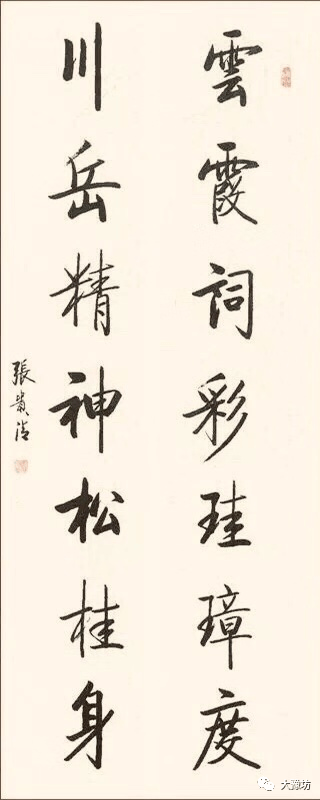 雲霞詞彩珪璋度
川岳精神松桂身
張貴
大豫坊